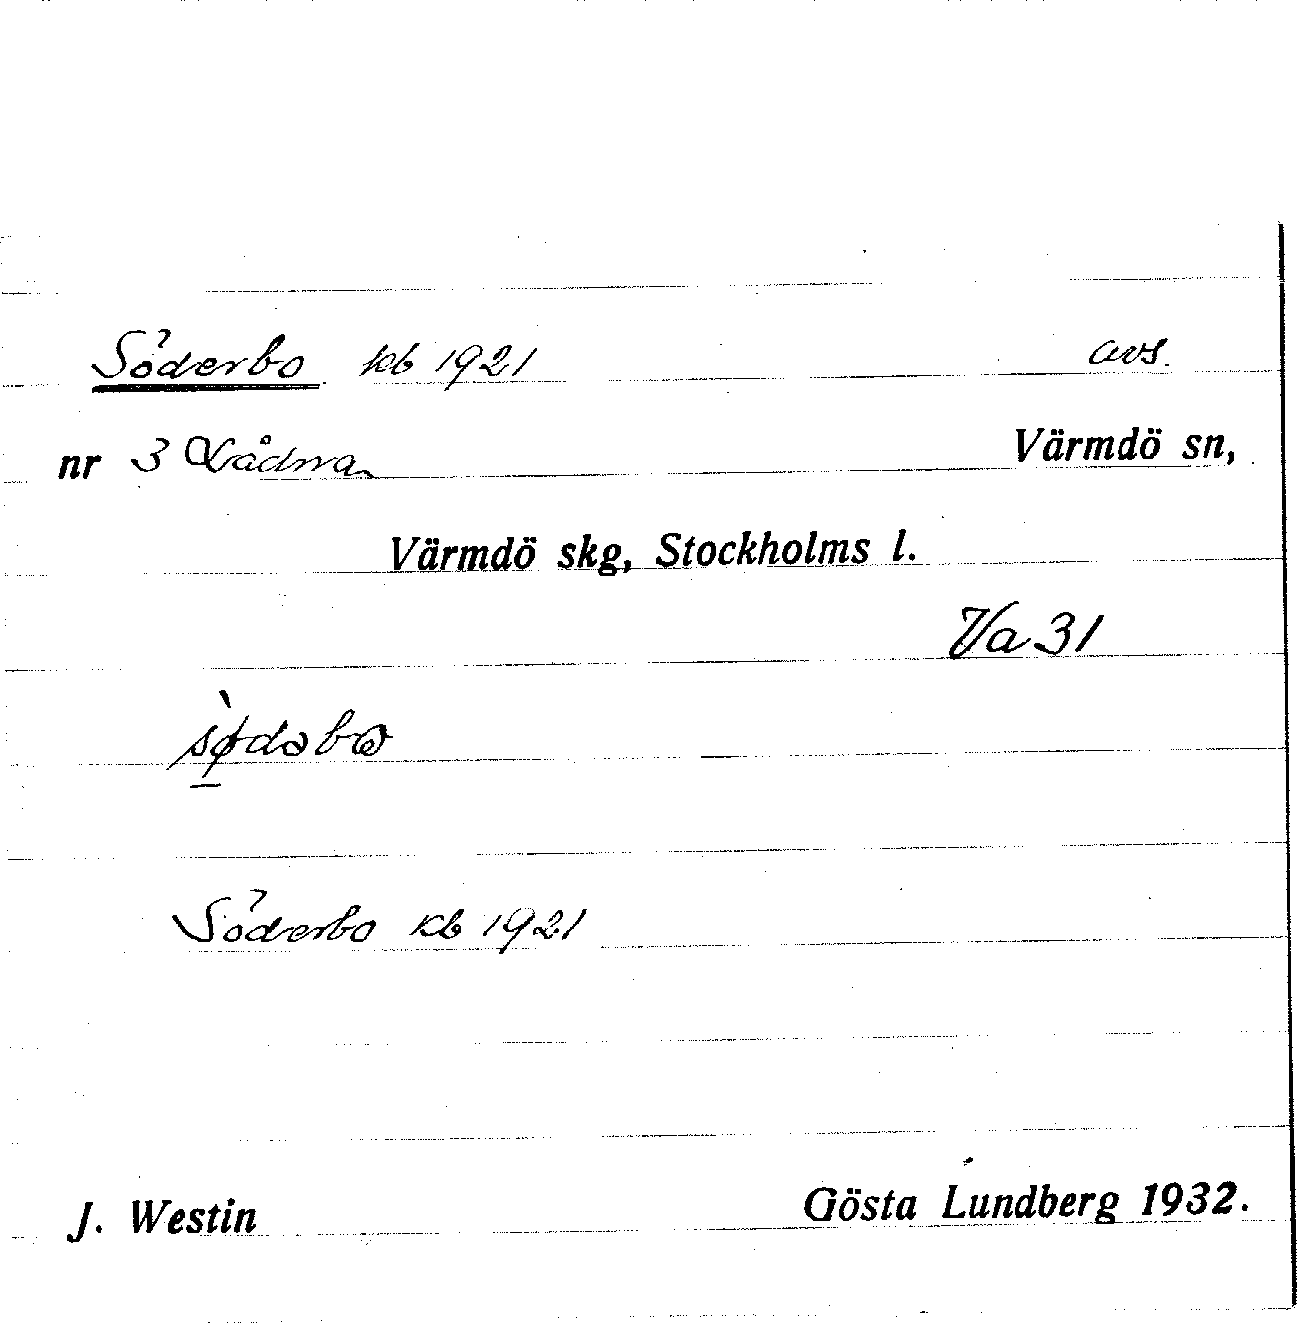 Söderbo kb 1921 avs.
nr 3 Vådna Värmdö sn,
Värmdö skg, Stockholms l.
Va 31
Söderbo kb 1921
J. Westin Gösta Lundberg 1932.